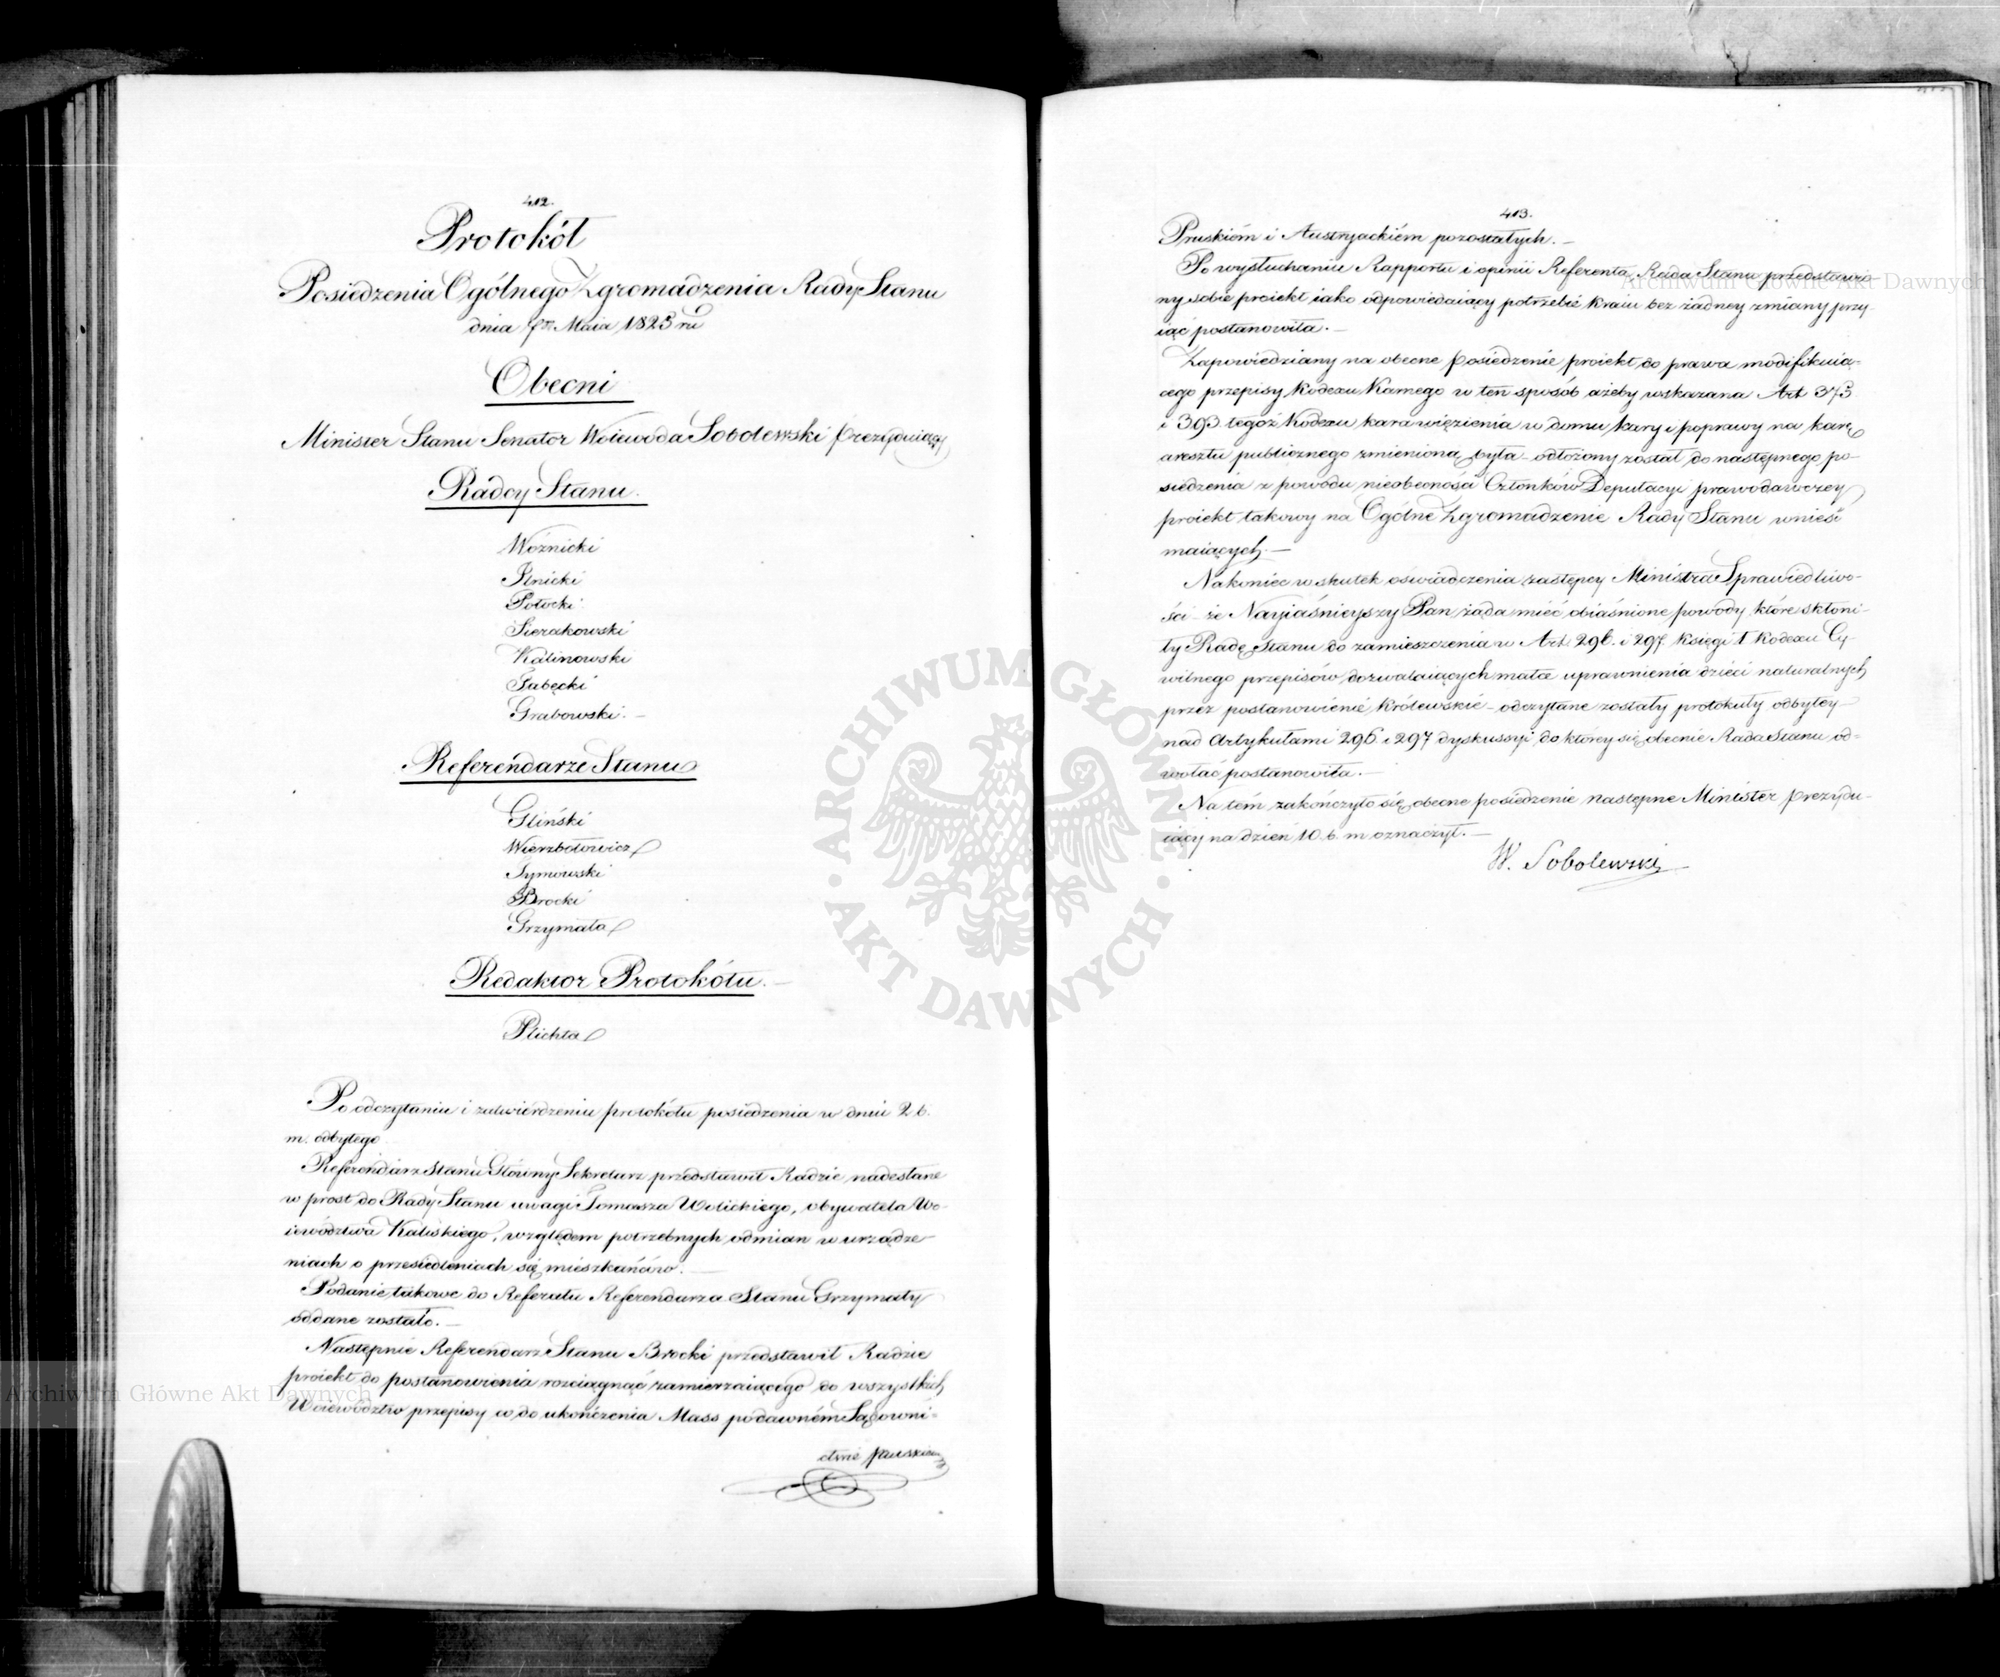 412.
Protokół
Posiedzenia Ogólnego Zgromadzenia Rady Stanu
dnia Maia 1825 ru
Obecni
Minister Stanu Senator Woiewoda Sobolewski Prezyduiący
Radcy Stanu.
Woźnicki
Potocki
Sierakowski
Kalinowski
Grabowski. —
Referendarze Stanu
Gliński
Wierzbołowicz
Symowski
Brocki
Grzymała
Redaktor Protokółu. —
Plichta
Po odczytaniu i zatwierdzeniu protokółu posiedzenia w dniu 2 b.
m. odbytego
Referendarz Stanu Główny Sekretarz przedstawił Radzie nadesłane
w prost do Rady Stanu uwagi Tomasza Wolickiego, obywatela Wo-
iewództwa Kaliskiego, względem potrzebnych odmian w urządze-
niach o przesiedleniach się mieszkańców. —
Podanie takowe do Referatu Referendarza Stanu Grzymały
oddane zostało. —
Następnie Referendarz Stanu Brocki przedstawił Radzie
proiekt do postanowienia rozciągnąć zamierzaiącego do wszystkich
Woiewództw przepisy w do ukończenia Mass po dawném Sądowni-
ctwie Pruskiem
413.
Pruskióm i Austryackiém pozostałych. —
Po wysłuchaniu Rapportu i opinii Referenta, Rada Stanu przedstawio-
ny sobie proiekt iako odpowiedaiący potrzebie Kraiu bez żadney zmiany przy-
iąć postanowiła. —
Zapowiedziany na obecne posiedzenie proiekt do prawa modifikuią-
cego przepisy Kodexu Karnego w ten sposób ażeby wskazana Art 373
i 393 tegóż Kodexu kara więzienia w domu kary i poprawy na karę
aresztu publicznego zmienioną była — odłożony został do następnego po-
siedzenia z powodu nieobecności Członków Deputacyi prawodawczey
proiekt takowy na Ogólne Zgromadzenie Rady Stanu wnieść
maiących. —
Nakoniec w skutek oświadczenia zastępcy Ministra Sprawiedliwo-
ści — że Nayiaśnieyszy Pan żąda mieć obiaśnione powody które skłoni-
ły Radę Stanu do zamieszczenia w Art 296. i 297. Księgi 1 Kodexu Cy-
wilnego przepisów dozwalaiących matce uprawnienia dzieci naturalnych
przez postanowienie Królewskie — odczytane zostały protokuły odbytey
nad Artykułami 296 i 297 dyskussyi do którey się obecnie Rada Stanu od-
wołać postanowiła. —
Na tém zakończyło się obecne posiedzenie następne Minister Prezydu-
iący na dzień 10. b. m oznaczył. —
W. Sobolewski
ARCHIWUM GŁÓWNE
AKT DAWNYCH
Archiwum Główne Akt Dawnych
Archiwum Główne Akt Dawnych